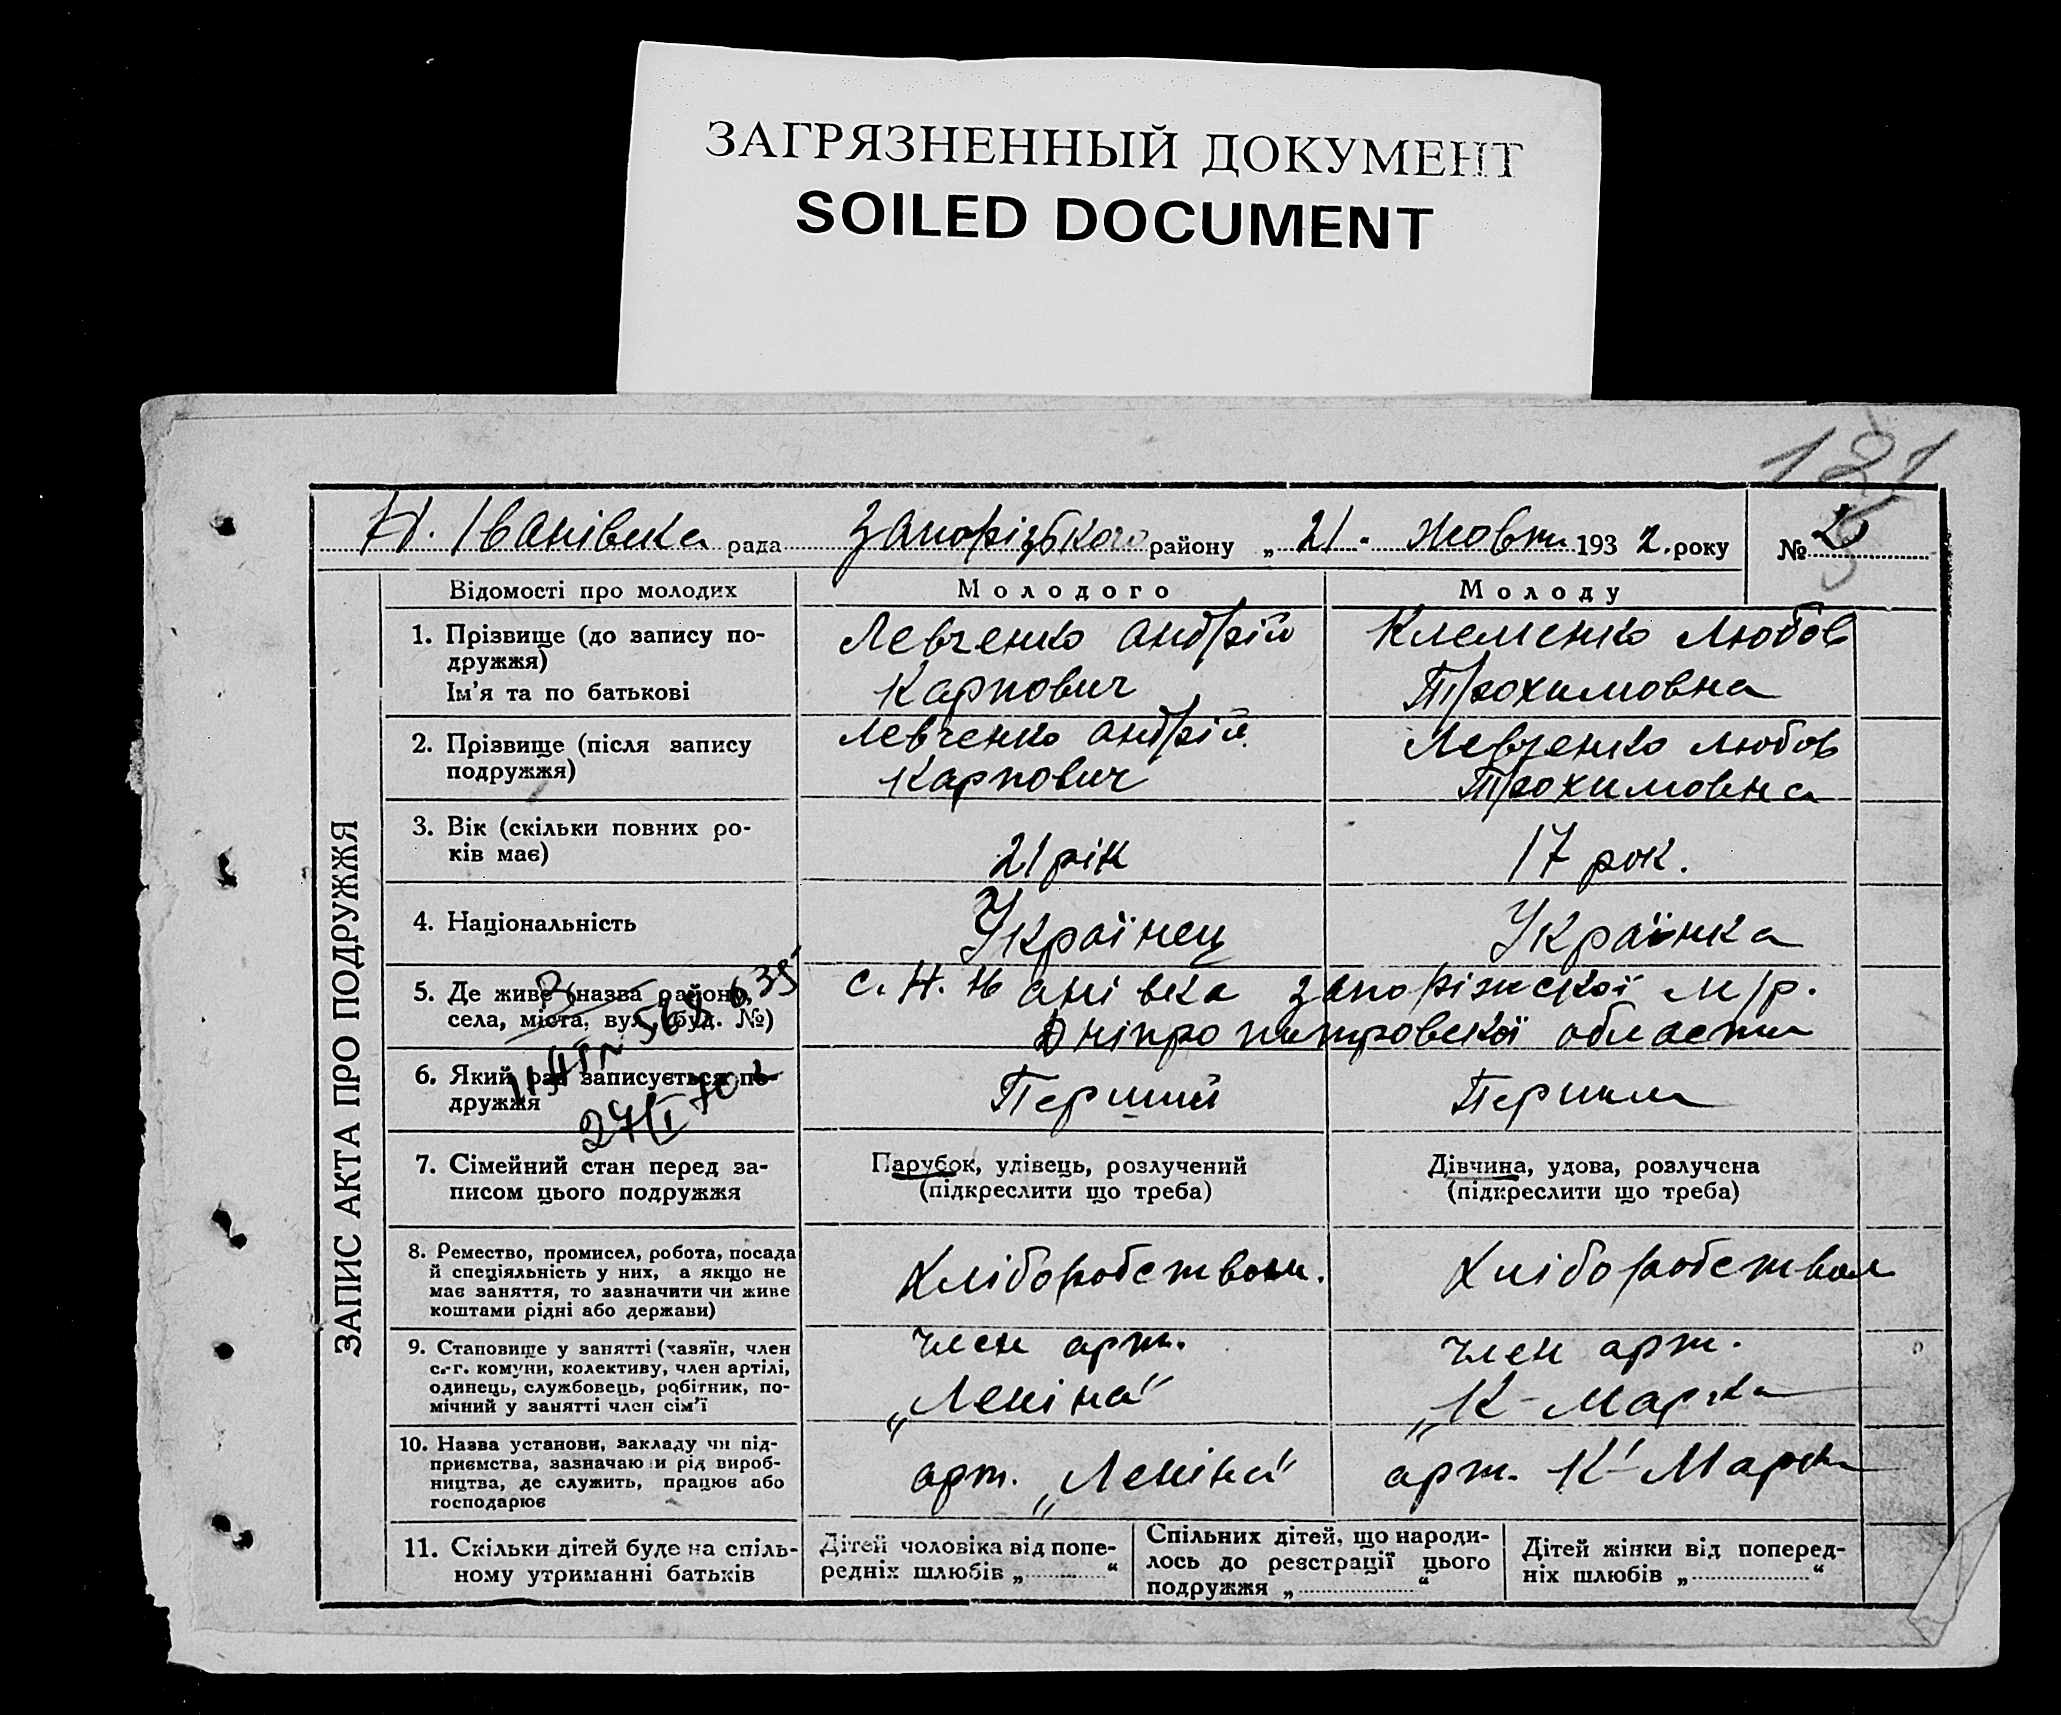 ЗАГРЯЗНЕННЫЙ ДОКУМЕНТ
SOILED DOCUMENT
121
Н. Іванівска рада Запорізького району „ 21 " жовтн 1932. року №
ЗАПИС АКТА ПРО ПОДРУЖЖЯ
Відомості про молодих Молодого Молоду
1. Прізвище (до запису по-
дружжя)
Ім'я та по батькові
Левченко Андрій
Карпович
Клеменко Любов
Трохимовна
2. Прізвище (після запису
подружжя)
Левченко Андрій
Карпович
Левченко Любов
Трохимовна
3. Вік (скільки повних ро-
ків має)
21 рік
17 рок.
4. Національність
Українец
Українка
5. Де живе (назва району,
села, міста, вул., буд. №)
с. Н. Іванівка Запоріжскої м/р.
Дніпропитровскої области
6. Який раз записується по-
дружжя
27/I 70
Перший
Перша
7. Сімейний стан перед за-
писом цього подружжя
Парубок, удівець, розлучений
(підкреслити що треба)
Дівчина, удова, розлучена
(підкреслити що треба)
8. Ремество, промисел, робота, посада
й спеціяльність у них, а якщо не
має заняття, то зазначити чи живе
коштами рідні або держави)
Хліборобством.
Хліборобством
9. Становище у занятті (хазяїн, член
с.-г. комуни, колективу, член артілі,
одинець, службовець, робітник, по-
мічний у занятті член сім'ї
член арт.
„Леніна"
член арт.
„К-Маркса
10. Назва установи, закладу чи під-
приємства, зазначаючи рід вироб-
ництва, де служить, працює або
господарює
арт. „Леніна"
арт. К-Маркса
11. Скільки дітей буде на спіль-
ному утриманні батьків
Дітей чоловіка від попе-
редніх шлюбів „ "
Спільних дітей, що народи-
лось до реєстрації цього
подружжя „ "
Дітей жінки від поперед-
ніх шлюбів „ "